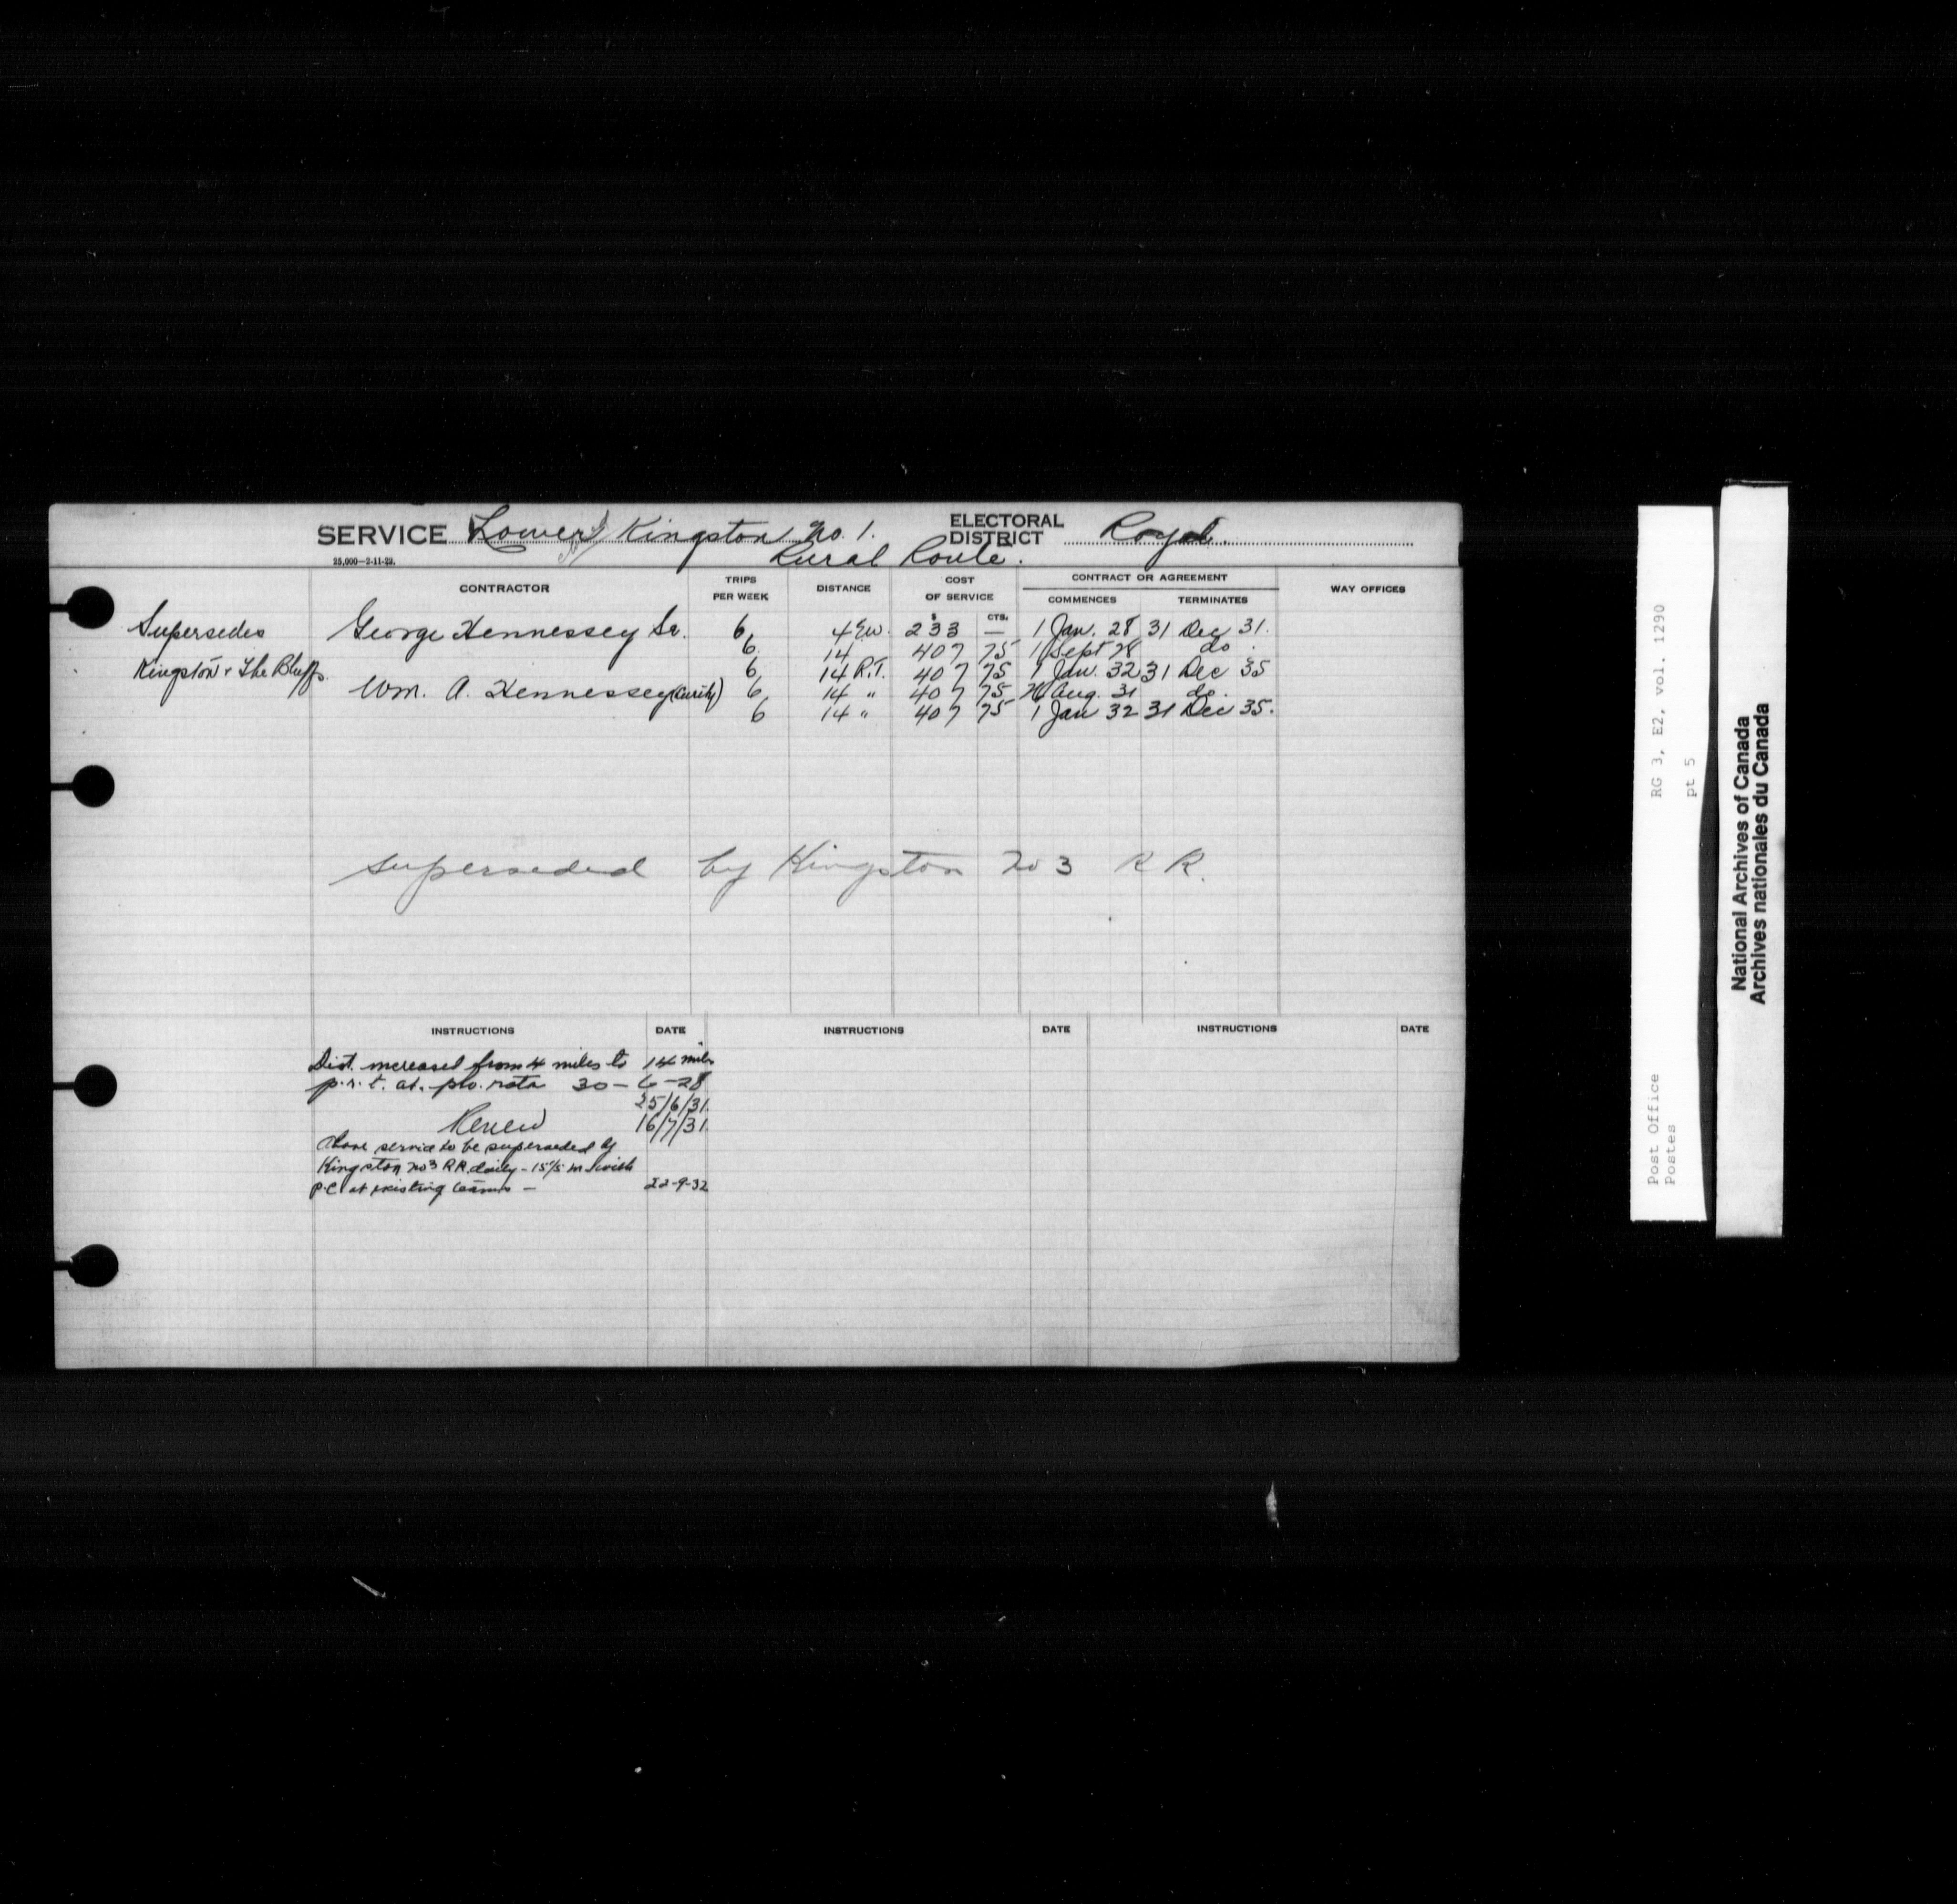 SERVICE Lower Kingston No. 1. ELECTORAL DISTRICT Royal.
25,000—2-11-22. Rural Route.
CONTRACTOR TRIPS PER WEEK DISTANCE COST OF SERVICE CONTRACT OR AGREEMENT WAY OFFICES
$ CTS. COMMENCES TERMINATES
Supersedes George Hennessey Sr. 6 4 E.W. 233 — 1 Jan. 28 31 Dec 31.
6 14 407 75 1 Sept 28 do.
Kingston & The Bluffs. 6 14 R.T. 407 75 1 Jan. 32 31 Dec 35
Wm. A. Hennessey 6 14 " 407 75 Aug. 31 do.
6 14 " 407 75 1 Jan 32 31 Dec 35.
superseded by Kingston No 3 R R.
INSTRUCTIONS DATE INSTRUCTIONS DATE INSTRUCTIONS DATE
Dist. increased from 4 miles to 14 miles
p.r.t. at. pro. rata 30-6-28
25/6/31
Renew 16/7/31
Above service to be superseded by
Kingston No 3 RR. daily - 15 1/5 m
P.C. at existing 22-9-32
RG 3, E2, vol. 1290
pt 5
Post Office
Postes
National Archives of Canada
Archives nationales du Canada